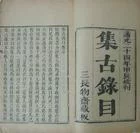 道光二十四年甲辰校刊
集古錄目
三長物齋藏版